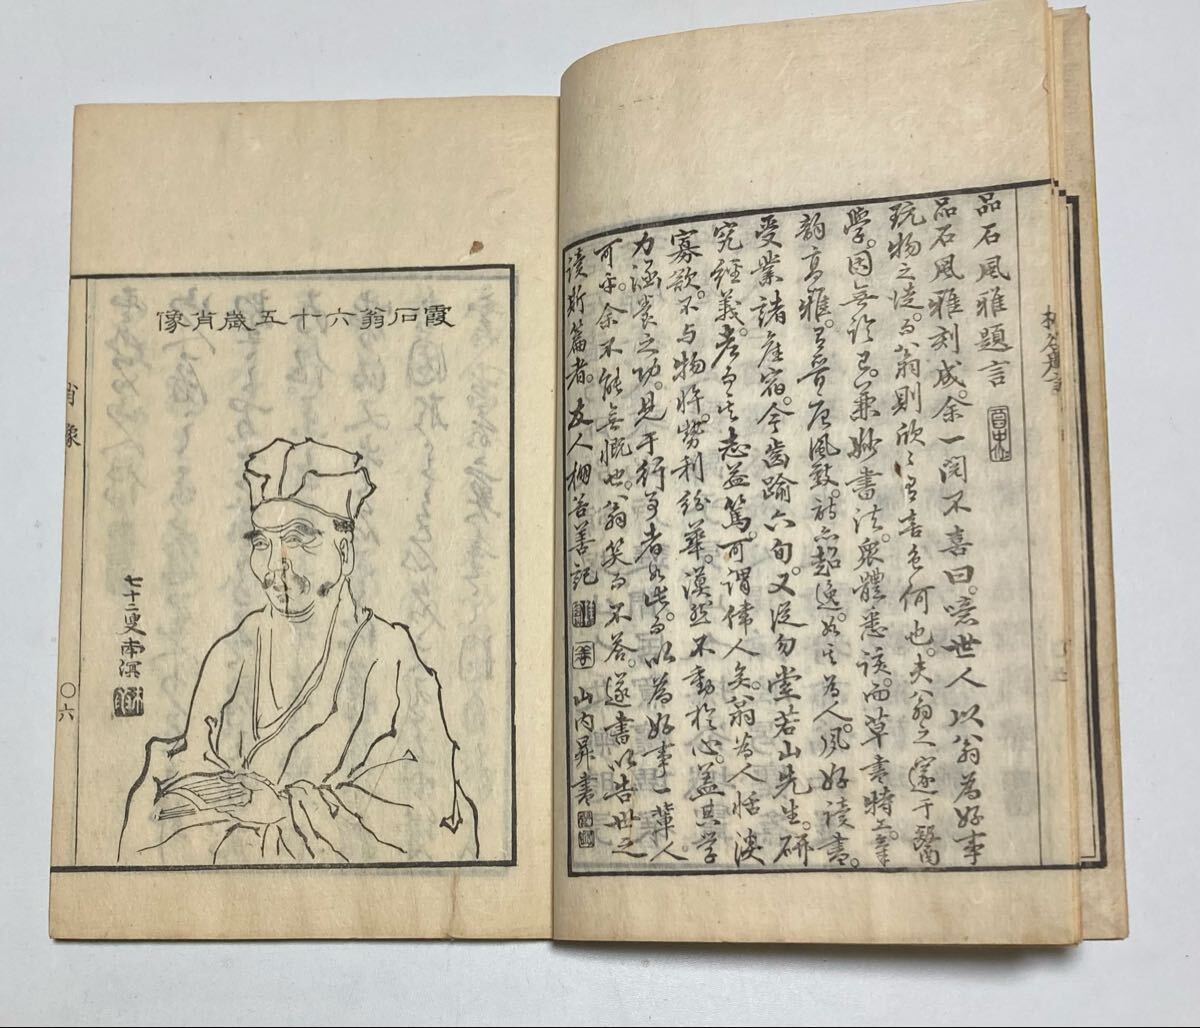 品石風雅題言
品石風雅刻成。余一閲不喜曰。噫世人以翁為好事
玩物之徒。而翁則欣〻有喜色何也。夫翁之邃于醫
學。固無論已。兼妙書法。衆體悉該。而草書特
韵高雅。有晋唐風致。超逸。如其為人。夙好読書。
受業諸產宿。今齒踰六旬。又從勿堂若山先生。研
究經義。老而其志益篤。可謂偉人矣。翁為人恬淡
寡欲。不与物忤。勢利紛華。漠然不動於心。蓋其学
力涵養之功。見于行事者如此。而以為好事一輩人
可乎。余不能無慨也。翁笑而不答。遂書以告世之
読斯篇者。友人棚善記
山内昇書
霞石翁六十五歳肖像
七十二叟南溟
肖像
〇六